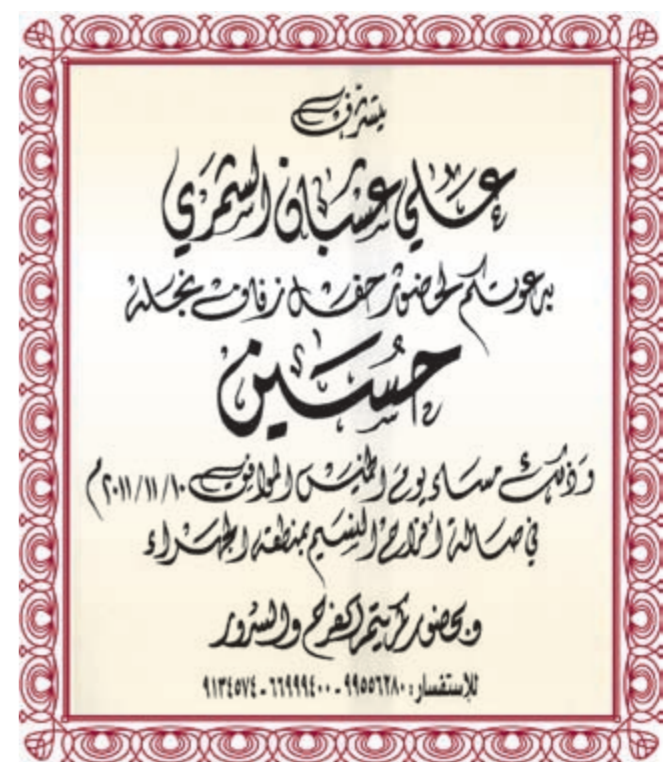 يتشرف
علي عشبان الشمري
بدعوتكم لحضور حفل زفاف نجله
حسين
وذلك مساء يوم الخميس الموافق ٢٠١١/١١/١٠م
في صالة أفراح النسيم بمنطقة الجهراء
وبحضوركم يتم الفرح والسرور
للإستفسار: ٩٩٥٥٦٢٨٠ - ٦٦٩٩٩٤٠٠ - ٩١٣٤٥٧٤